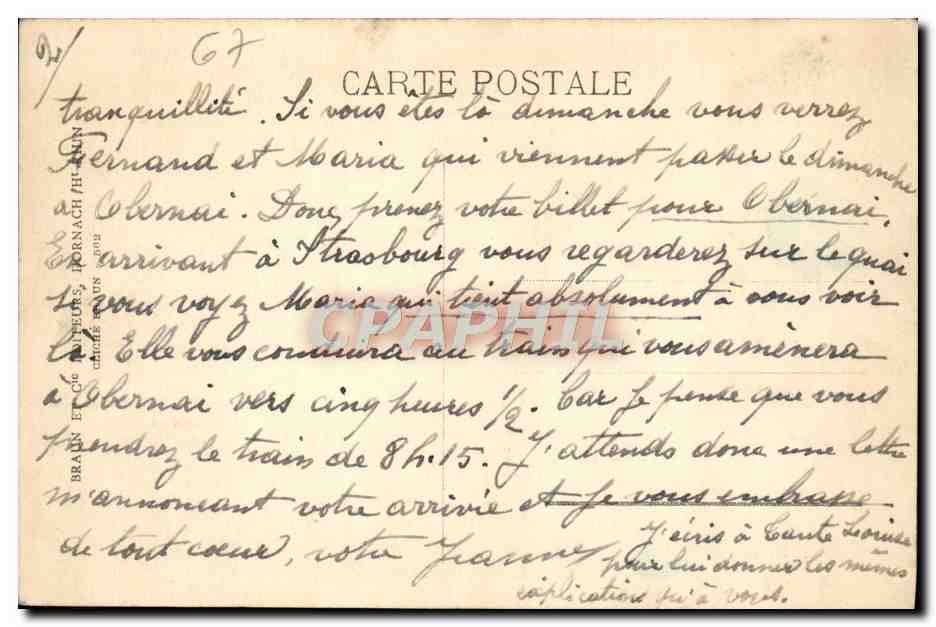 2/
67
CARTE POSTALE
tranquillité. Si vous êtes là dimanche vous verrez
Fernand et Maria qui viennent passer le dimanche
à Obernai. Donc, prenez votre billet pour Obernai.
En arrivant à Strasbourg vous regarderez sur le quai
si vous voyez Maria qui tient absolument à vous voir
là. Elle vous conduira au train qui vous amènera
à Obernai vers cinq heures 1/2. Car je pense que vous
prendrez le train de 8h.15. J'attends donc une lettre
m'annoncant votre arrivée et je vous embrasse
de tout coeur, votre Jeanne
J'écris à tante Louise
pour lui donner les mêmes
explications qu'à vous.
BRAUN ET Cie EDITEURS, DORNACH/Ht-RHIN
CLICHÉ BRAUN
CPAPHIL